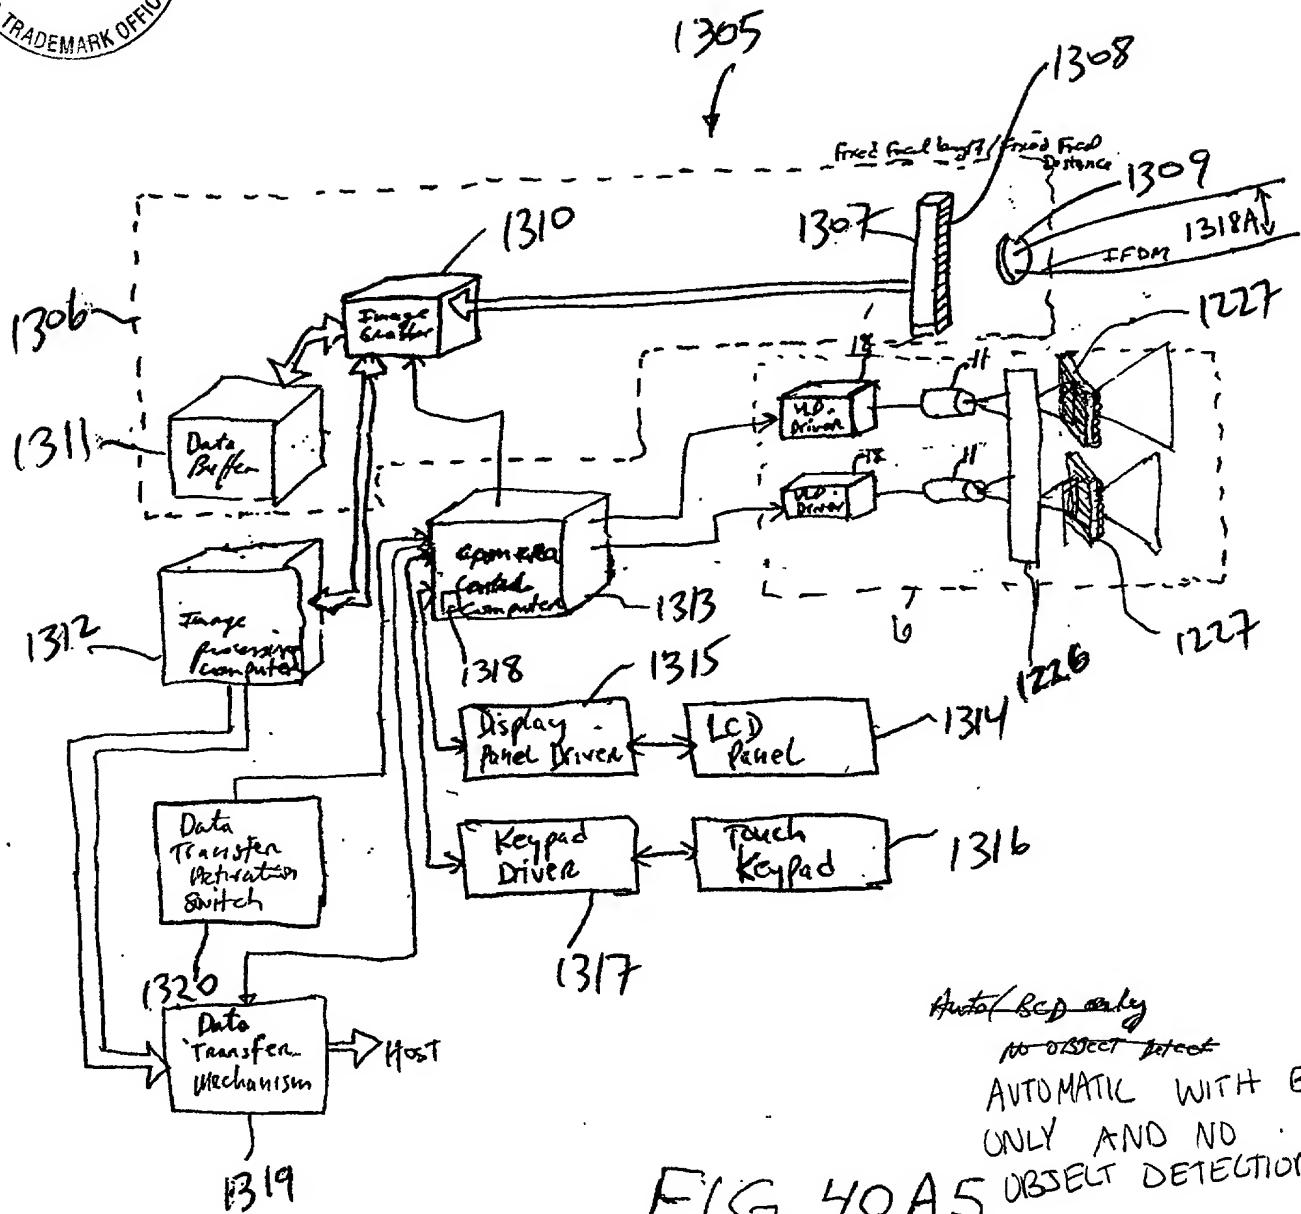 TRADEMARK OFFIC
1305
1308
Fixed Focal length / Fixed Focal
Distance
1309
1307
1318A
IFDM
1310
1306
Image
Grabber
1227
18
11
VLD
Driver
1311
Data
Buffer
18
11
VLD
Driver
Camera
Control
Computer
1313
1312
Image
processing
computer
6
1227
1226
1318
1315
Display
Panel Driver
LCD
Panel
1314
Data
Transfer
Activation
Switch
Keypad
Driver
Touch
Keypad
1316
1317
1320
Data
Transfer
Mechanism
Host
1319
Auto/ BCD only
No OBJECT Detect
AUTOMATIC WITH B
ONLY AND NO
OBJECT DETECTION
FIG 40A5